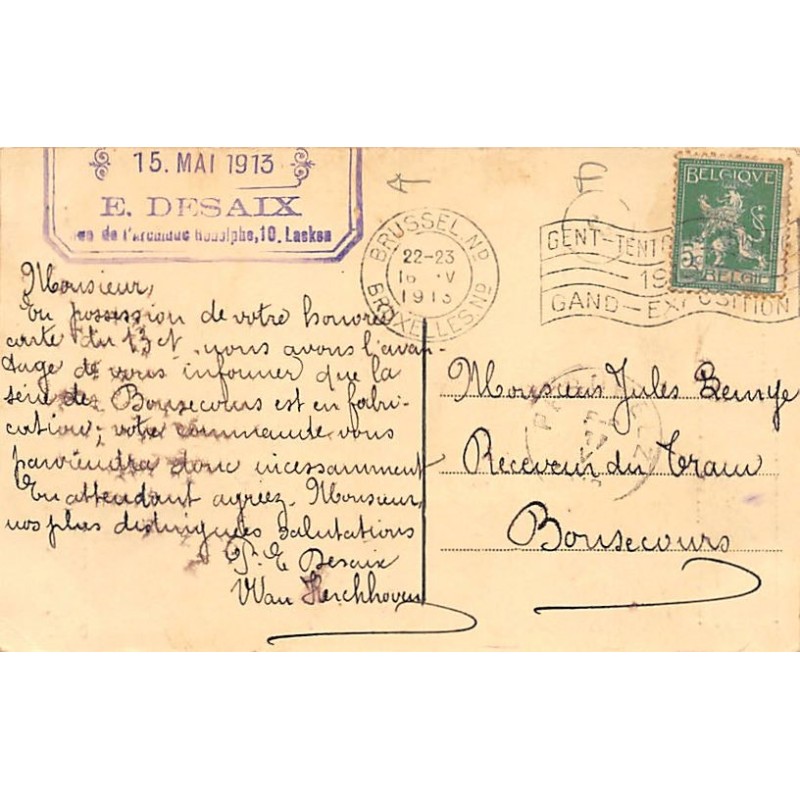 15. MAI 1913
E. DESAIX
rue de l'Archiduc Rodolphe, 10, Laeken
BRUSSEL. ND
22-23
16 V
1913
BRUXELLES. ND
GENT-TENTO
19
GAND-EXPOSITION
BELGIQUE
5
BELGIË
Monsieur,
En possession de votre honorée
carte du 13 ct nous avons l'avan-
tage de vous informer que la
série de Bonsecours est en fabri-
cation, votre commande vous
parviendra donc incessamment
En attendant agréez Monsieur,
nos plus distinguées salutations
P. E Desaix
VVan Kerckhoven
Monsieur Jules
Receveur du Tram
Bonsecours